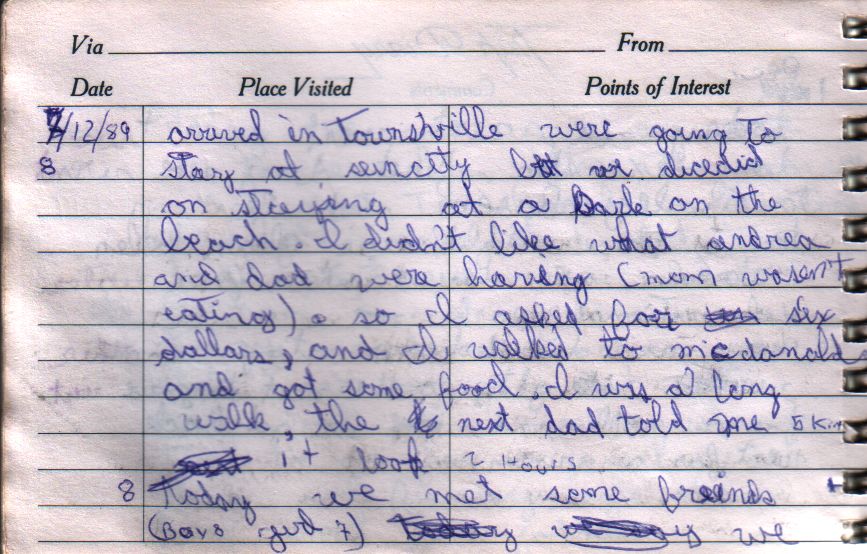 Via From
Date Place Visited Points of Interest
7/12/89 arraved in Townshville were going to
8 stay at suncity but we dicedid
on staying at a Park on the
beach. I didn't like what andrea
and dad were having (mom wasent
eating). so I asked for six
dollars, and I walked to mcdonald
and got some food. I was a long
walk, the next dad told me 5 Km
it took 2 Hours
8 today we met some freinds
(Boy 8 girl 7) we